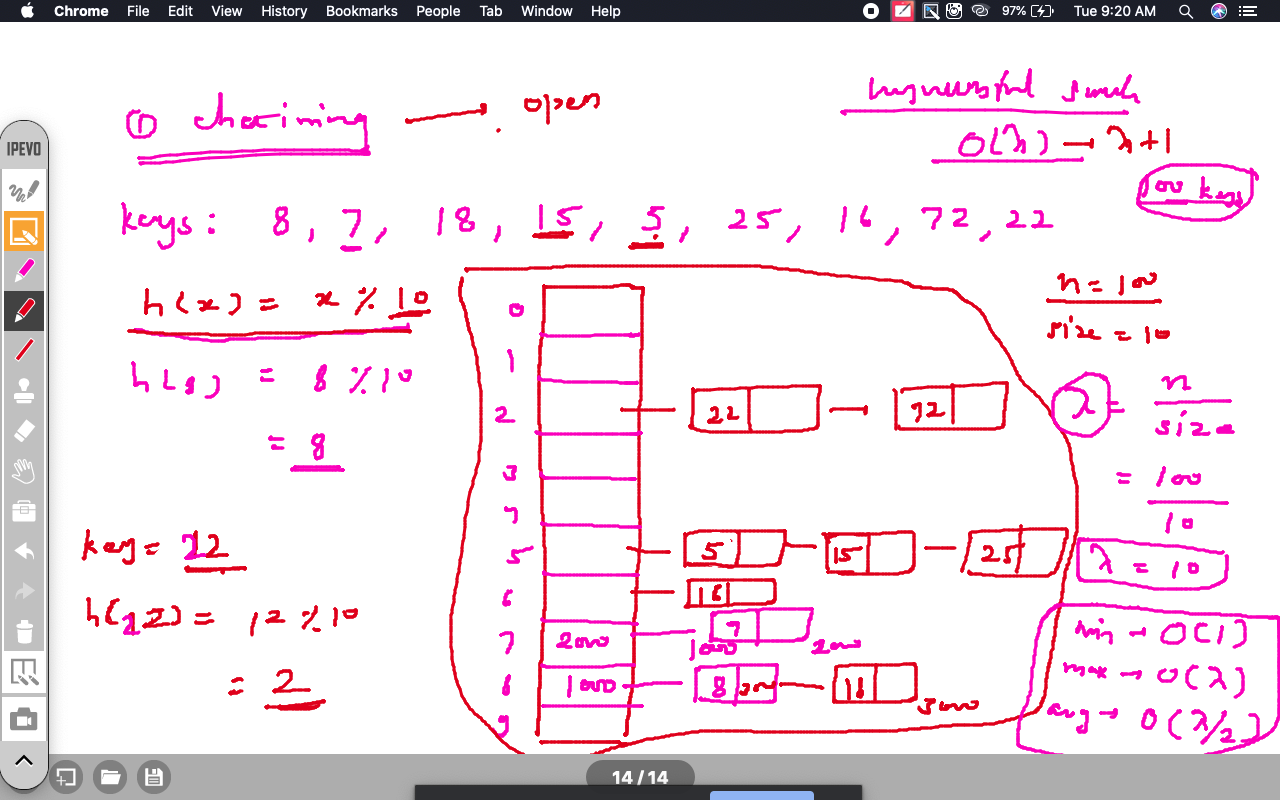 Chrome File Edit View History Bookmarks People Tab Window Help 97% Tue 9:20 AM
IPEVO
① chaining → open
unsuccessful search
O(λ) → λ+1
100 keys
keys: 8, 7, 18, 15, 5, 25, 16, 72, 22
h(x) = x % 10
h(8) = 8 % 10
= 8
key = 12
h(12) = 12 % 10
= 2
0
1
2 22 72
3
5 5 15 25
6 16
7 2000 7 1000 2000
8 1000 8 18 3000
9
n = 100
size = 10
λ = n / size
= 100 / 10
λ = 10
min → O(1)
max → O(λ)
avg → O(λ/2)
14 / 14